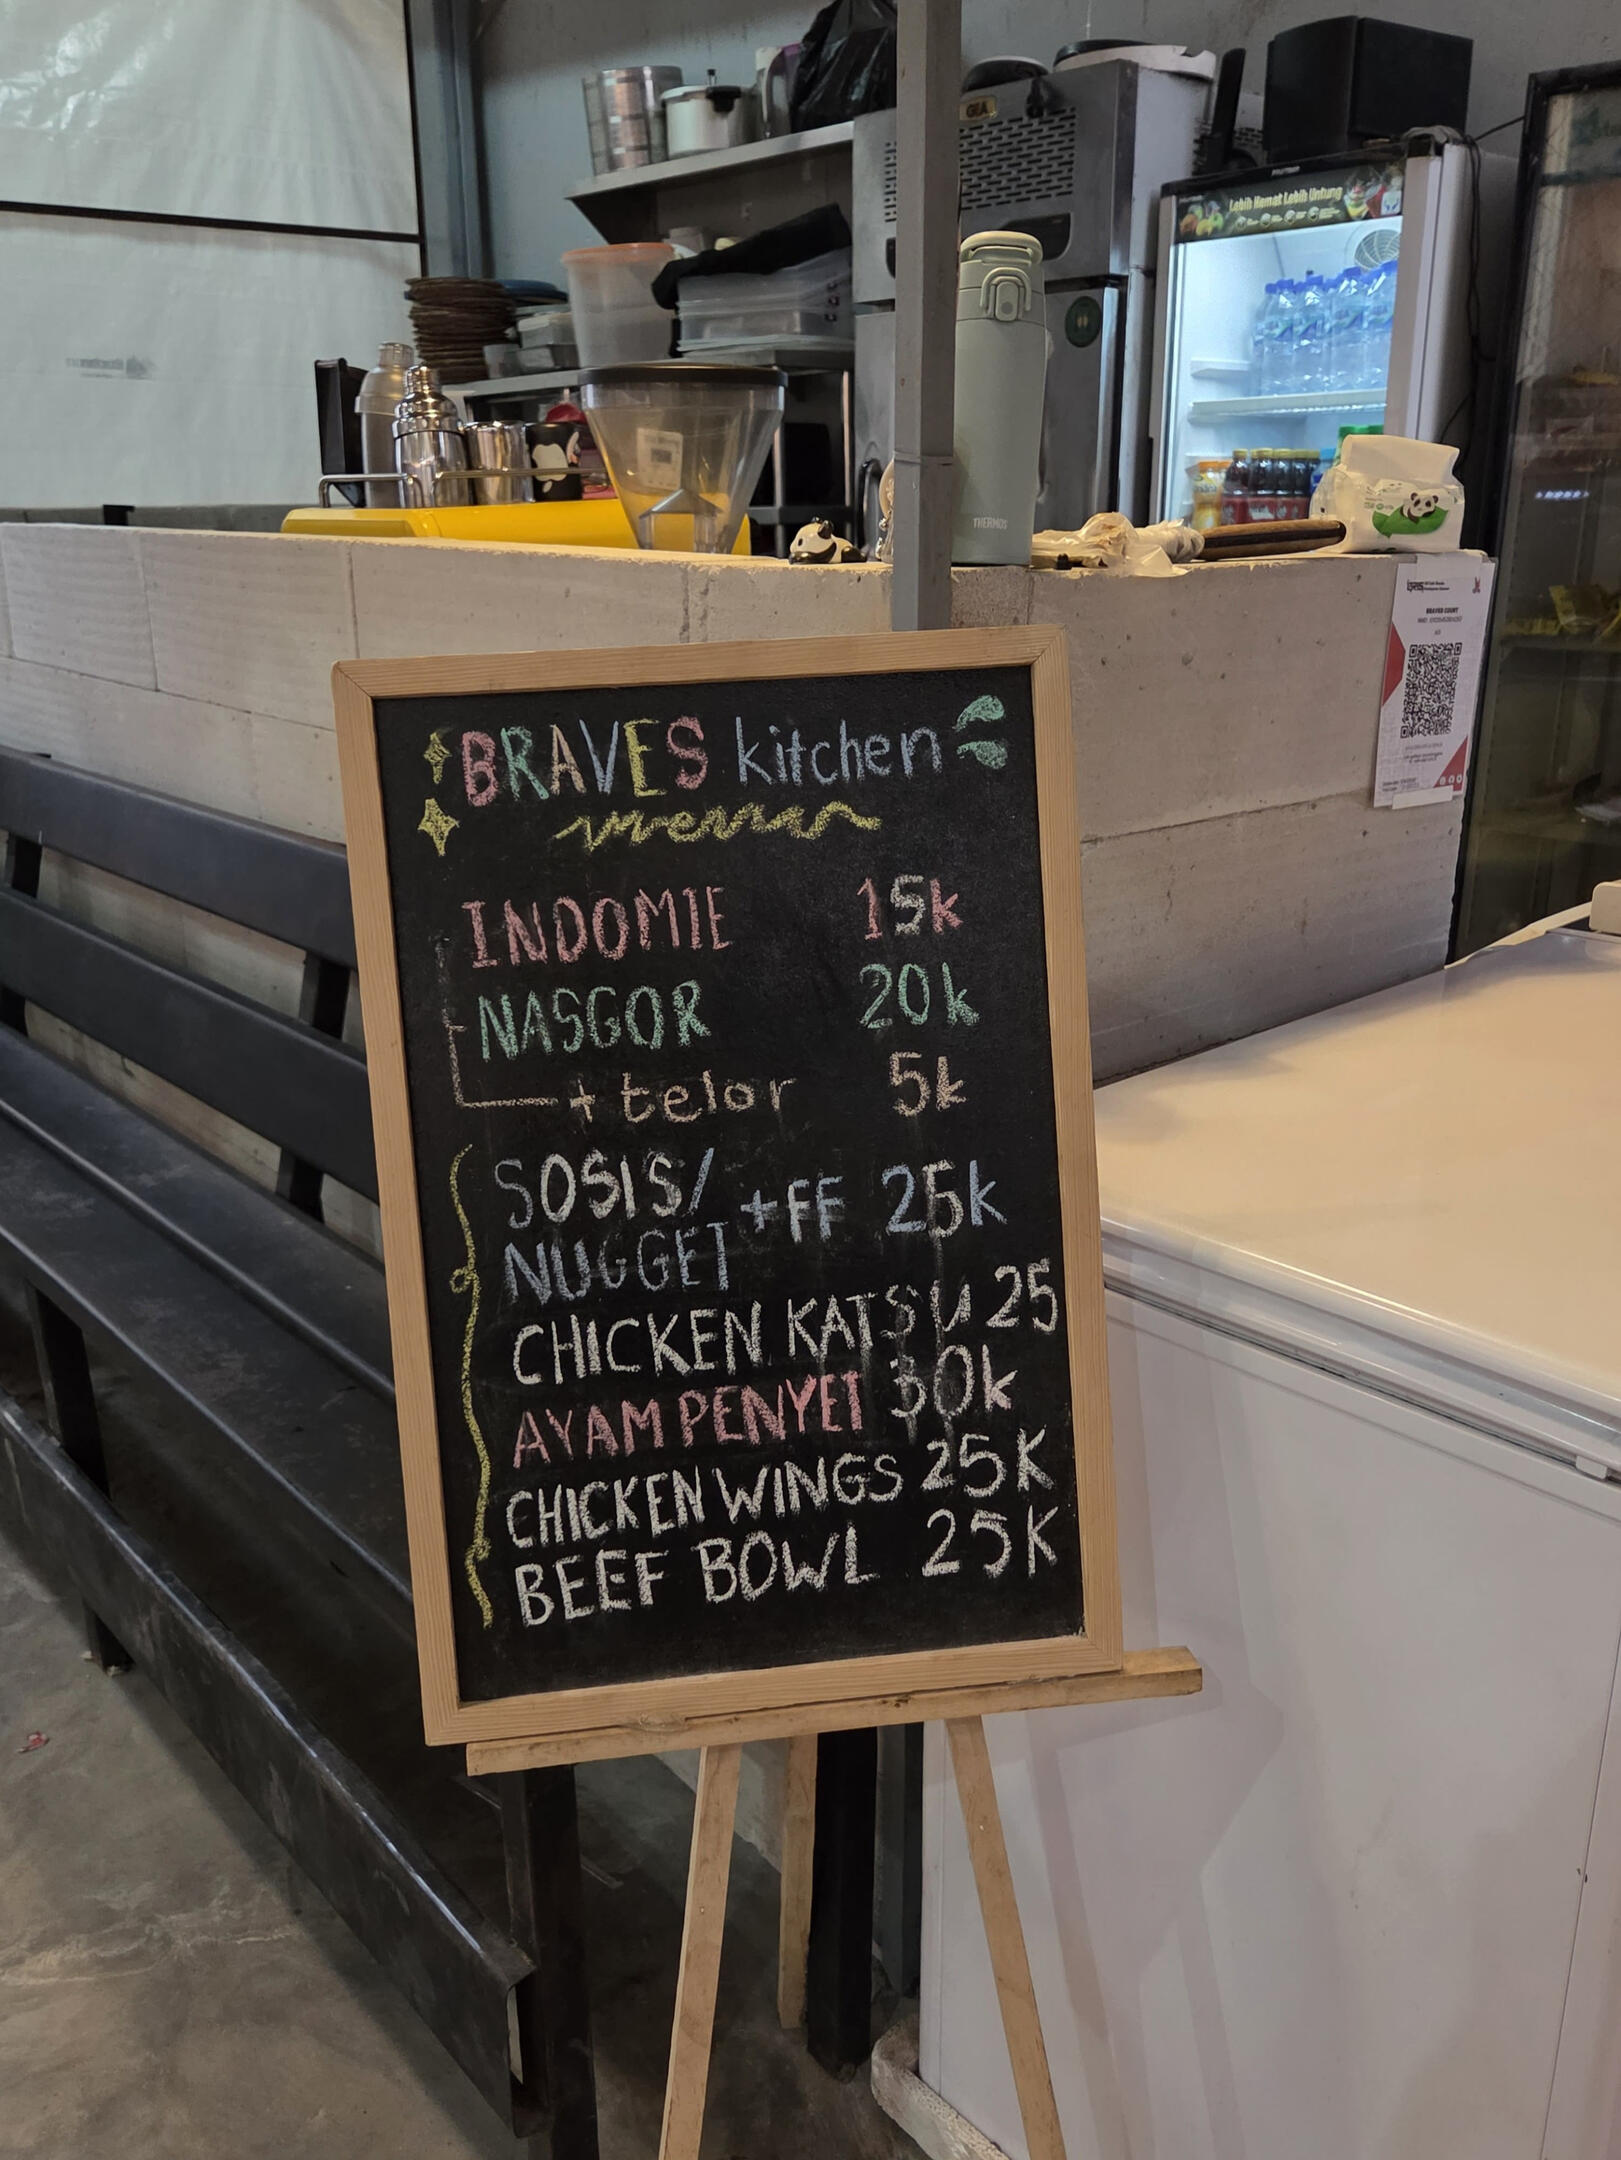 GEA
Lebih Hemat Lebih Untung
THERMOS
BRAVES COURT
BRAVES kitchen
menu
INDOMIE 15k
NASGOR 20k
+ telor 5k
SOSIS/
NUGGET +FF 25k
CHICKEN KATSU 25
AYAM PENYET 30k
CHICKEN WINGS 25K
BEEF BOWL 25K